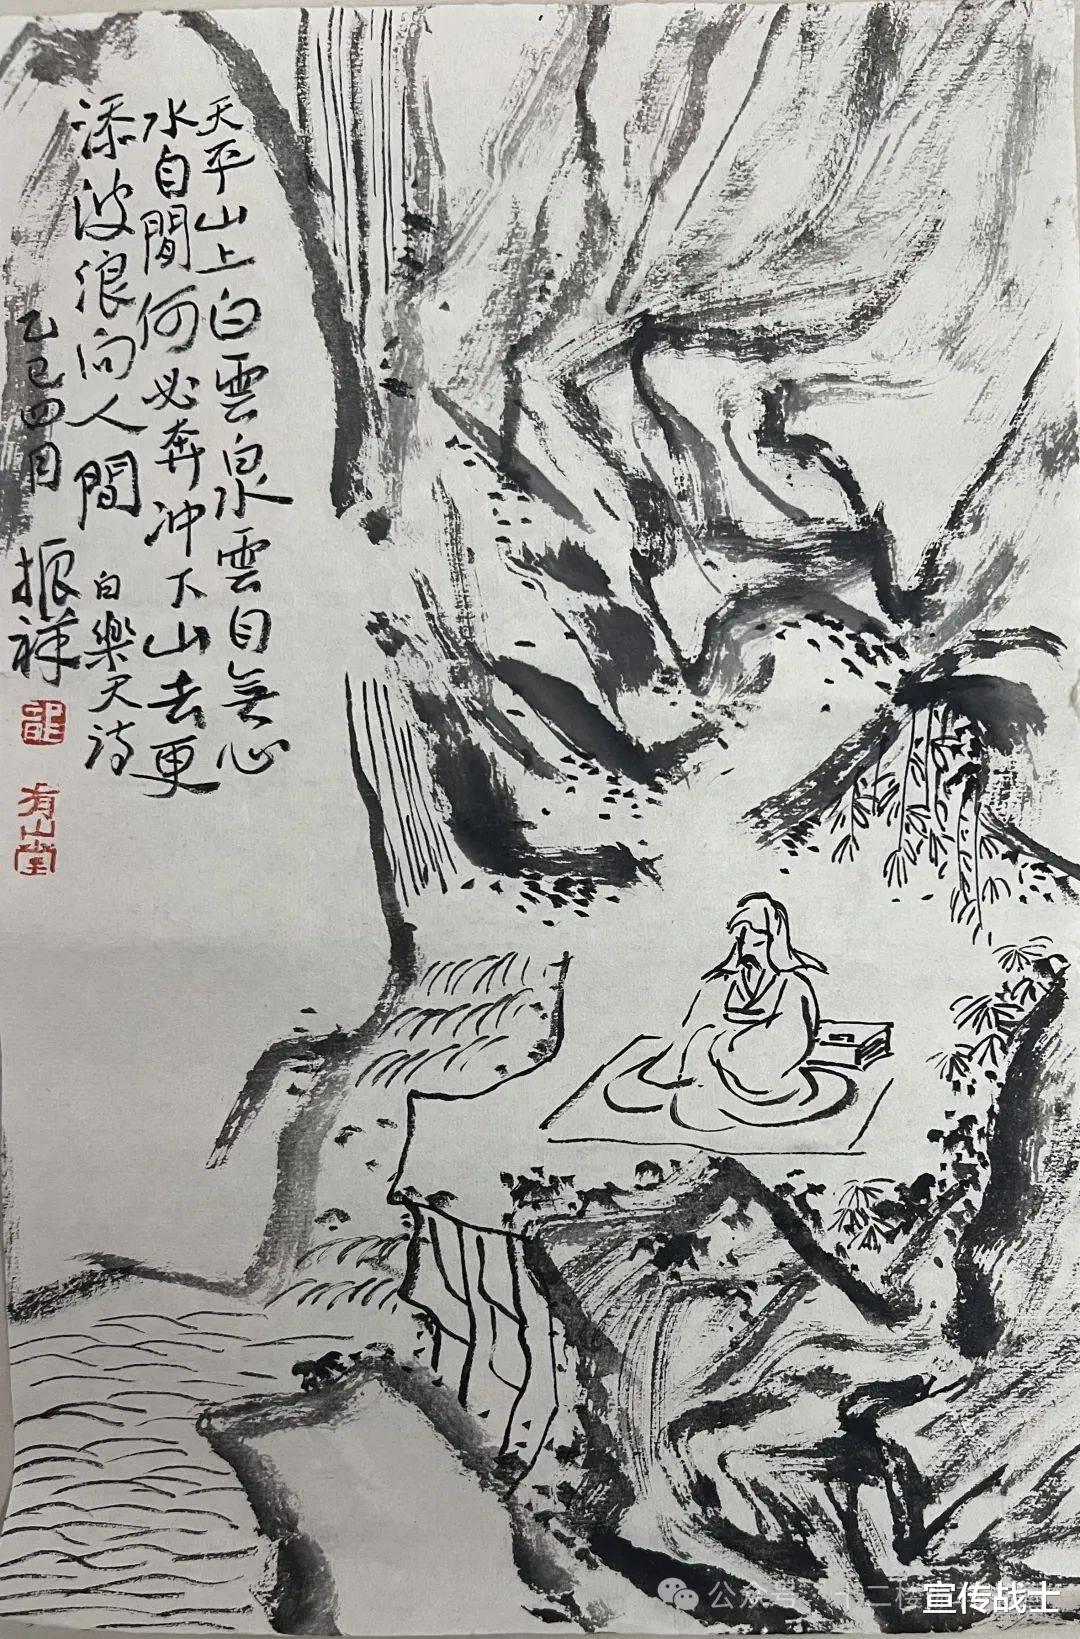 天平山上白雲泉雲自無心
水自間何必奔冲下山去更
添波浪向人間
白樂天诗
乙巳四月
振祥
有山堂
公众号
二楼
宣传战士